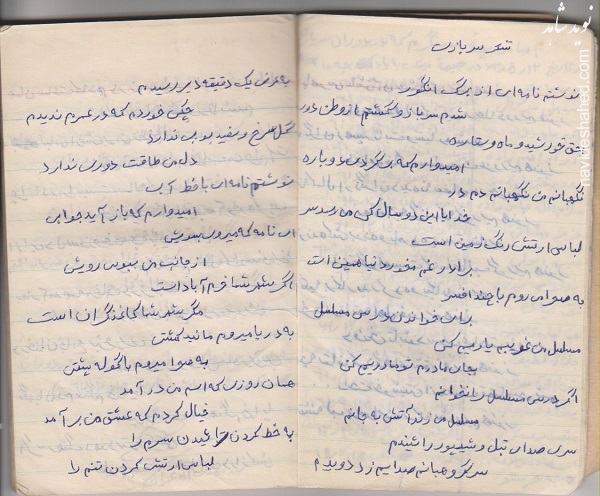 شعر سربازی
نوشتم نامه‌ای از برگ انگور
شدم سرباز و گشتم از وطن دور
بحق خورشید و ماه و ستاره
امیدوارم که برگردی دوباره
نگهبانم من نگهبانم دم در
خدایا این دو سال کی می رسد سر
لباس ارتش رنگ زمین است
برادر غم مخور دنیا همین است
به صحرا می روم با چند افسر
برای خواندن درس مسلسل
مسلسل من غریبم یاریم کن
بجای مادرم تو مادریم کن
اگر درس مسلسل را نخوانم
مسلسل می زند آتش به جانم
سری صدای تبل و شیپور را شنیدم
سرگروهبانم صدایم زد دویدم
به عرض یک دقیقه دیر رسیدم
چکی خوردم که در عمرم ندیدم
گل سرخ و سفید بویی ندارد
دل من طاقت دوری ندارد
نوشتم نامه‌ای با خط آبی
امیدوارم که باز آید جوابی
این نامه که میروی بسویش
از جانب من ببوس رویش
اگر شهر شما خرم آباد است
مگر شهر شما کاغذ گران است
به دریا میروم مانند کشتی
به صحرا میروم با کوله پشتی
همان روزی که اسم من در آمد
خیال کردم که عشق من برآمد
به خط کردن تراشیدن سرم را
لباس ارتشی کردن تنم را
نوید شاهد
navideshahed.com